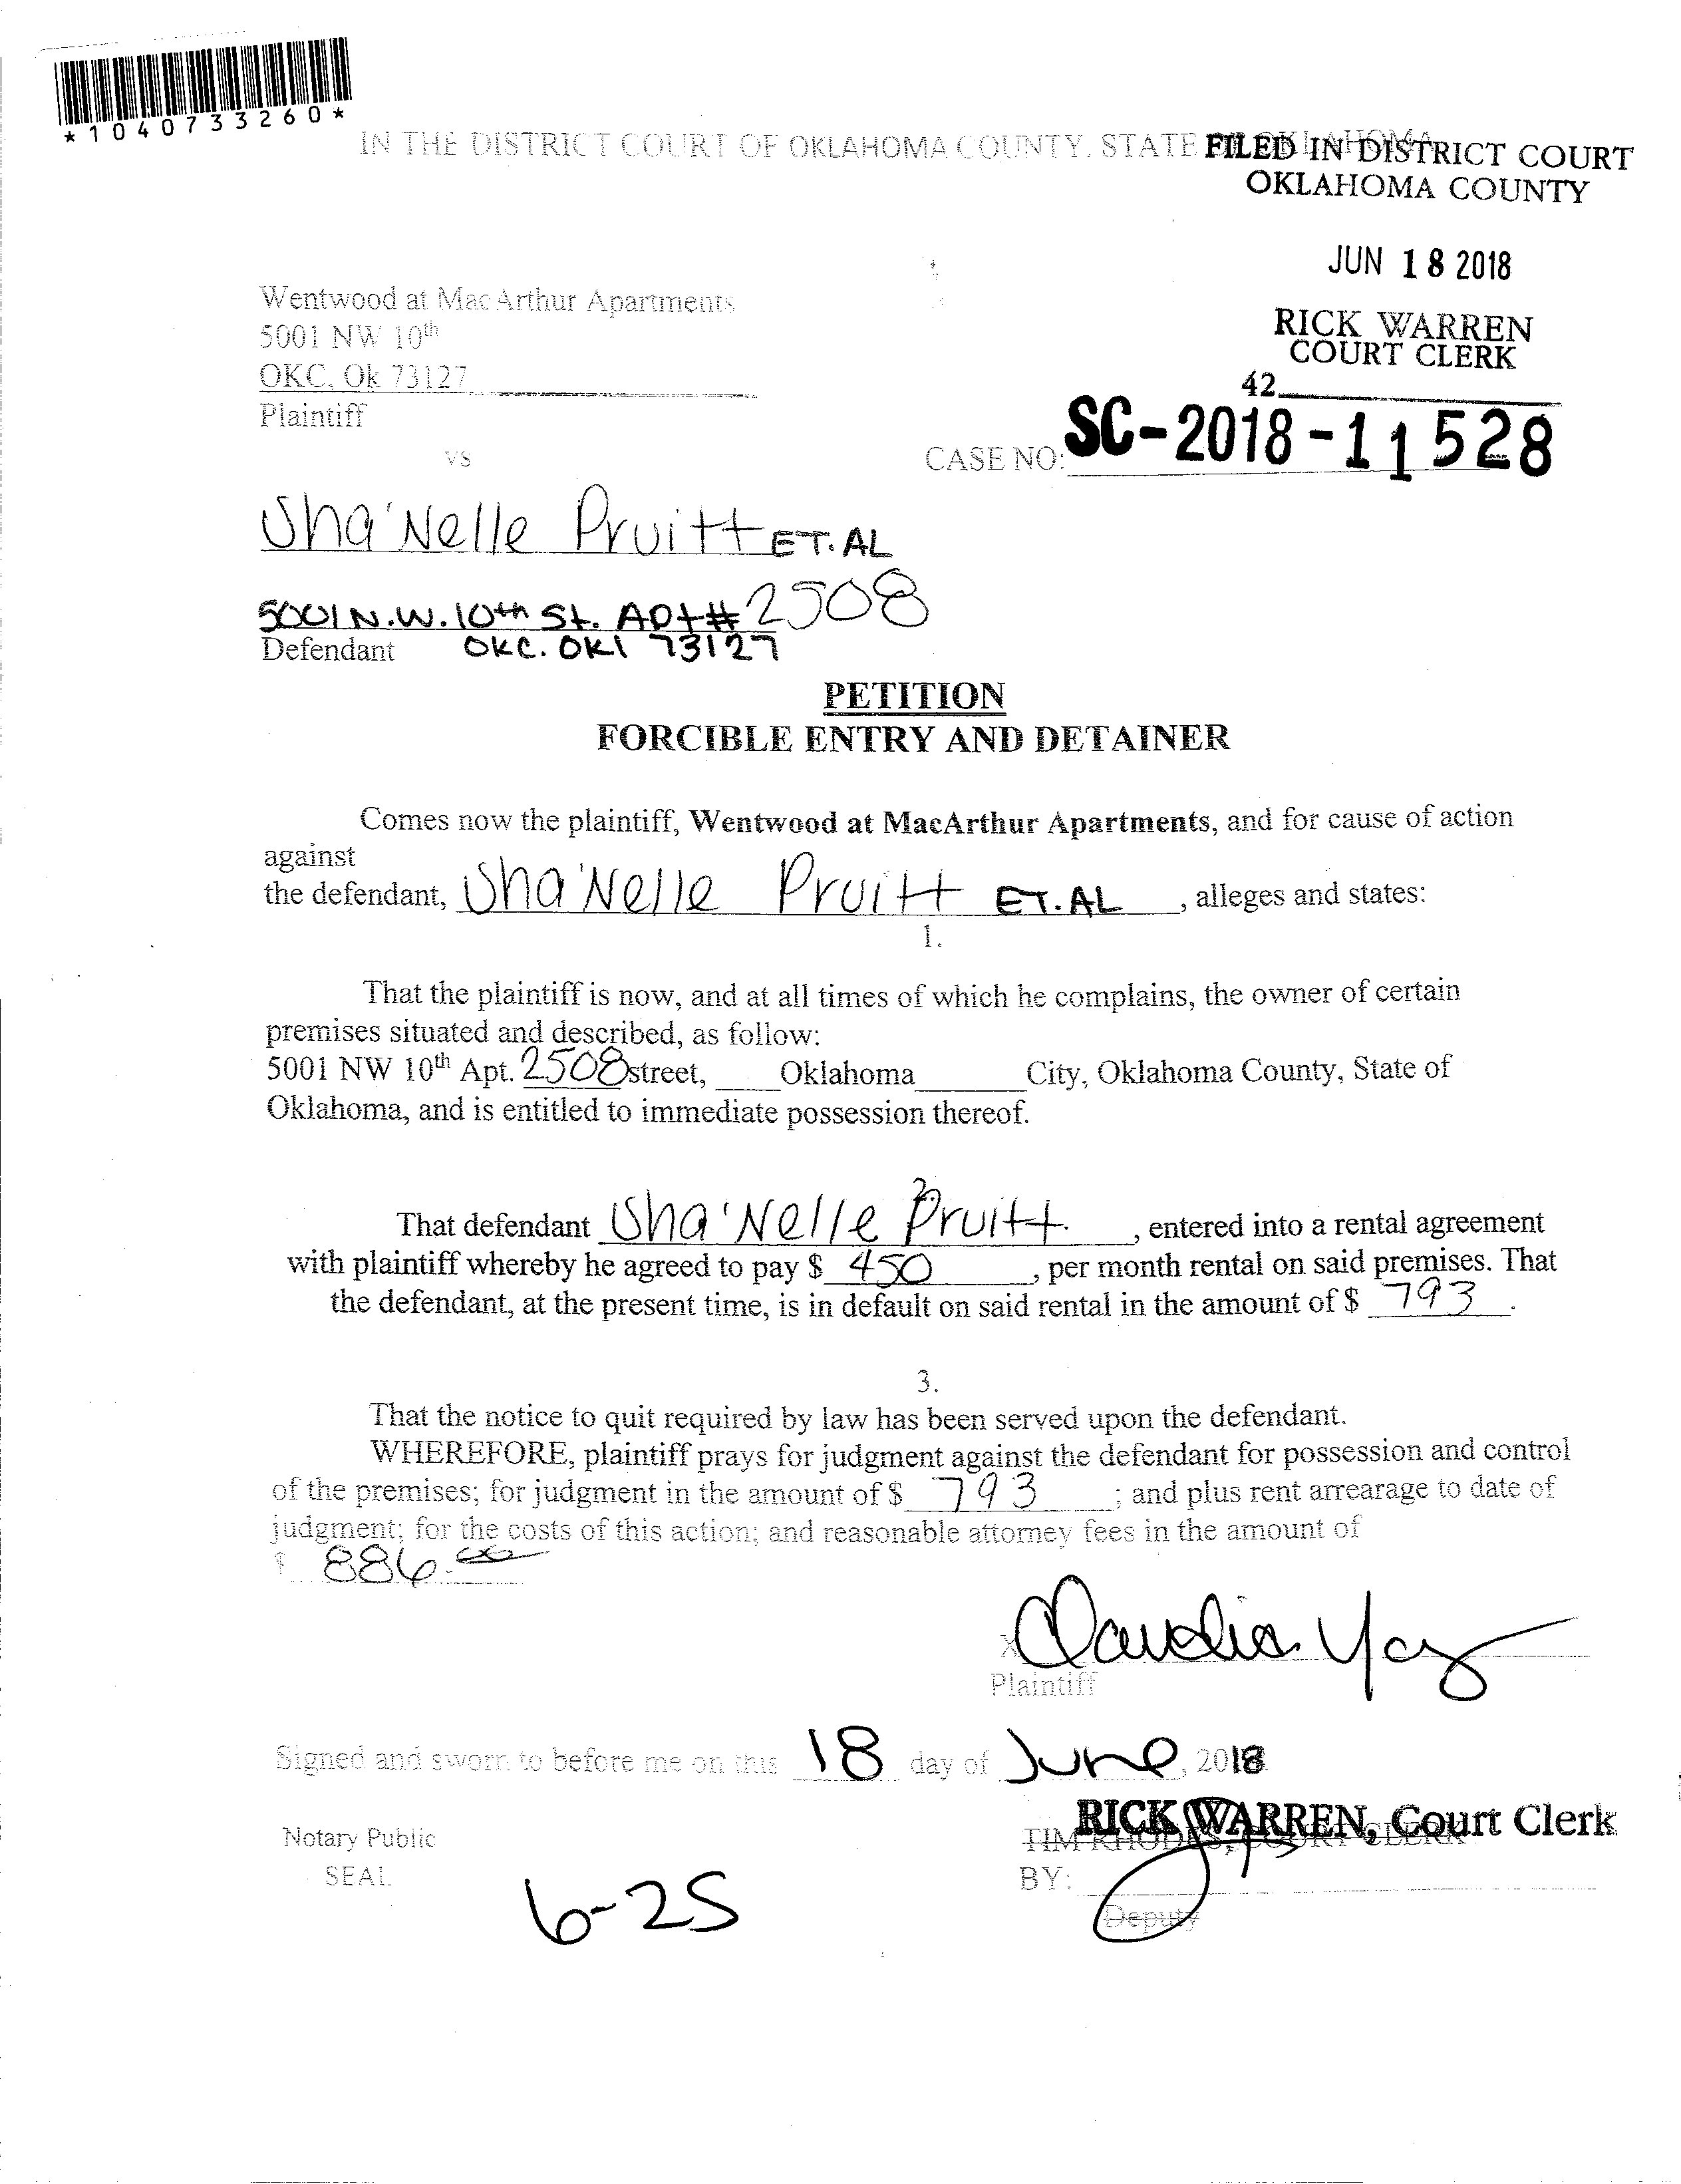 *1040733260*
IN THE DISTRICT COURT OF OKLAHOMA COUNTY, STATE OF OKLAHOMA
FILED IN DISTRICT COURT
OKLAHOMA COUNTY
JUN 18 2018
RICK WARREN
COURT CLERK
42
Wentwood at MacArthur Apartments
5001 NW 10th
OKC, Ok 73127
Plaintiff
vs
CASE NO: SC-2018-11528
Sha'Nelle Pruitt ET.AL
5001 N.W. 10th St. APt# 2508
Defendant OKC. OKl 73127
PETITION
FORCIBLE ENTRY AND DETAINER
Comes now the plaintiff, Wentwood at MacArthur Apartments, and for cause of action
against
the defendant, Sha'Nelle Pruitt ET.AL, alleges and states:
1.
That the plaintiff is now, and at all times of which he complains, the owner of certain
premises situated and described, as follow:
5001 NW 10th Apt. 2508 street, Oklahoma City, Oklahoma County, State of
Oklahoma, and is entitled to immediate possession thereof.
2.
That defendant Sha'Nelle Pruitt, entered into a rental agreement
with plaintiff whereby he agreed to pay $ 450, per month rental on said premises. That
the defendant, at the present time, is in default on said rental in the amount of $ 793.
3.
That the notice to quit required by law has been served upon the defendant.
WHEREFORE, plaintiff prays for judgment against the defendant for possession and control
of the premises; for judgment in the amount of $ 793; and plus rent arrearage to date of
judgment; for the costs of this action; and reasonable attorney fees in the amount of
$ 886.00
x Claudia
Plaintiff
Signed and sworn to before me on this 18 day of June, 2018
RICK WARREN, Court Clerk
Notary Public
TIM RHODES, COURT CLERK
SEAL
BY:
Deputy
6-25